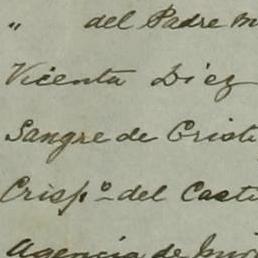 " del Padre M
Vicenta Diez
Sangre de Cristo
Crispº del Casti
Agencia de